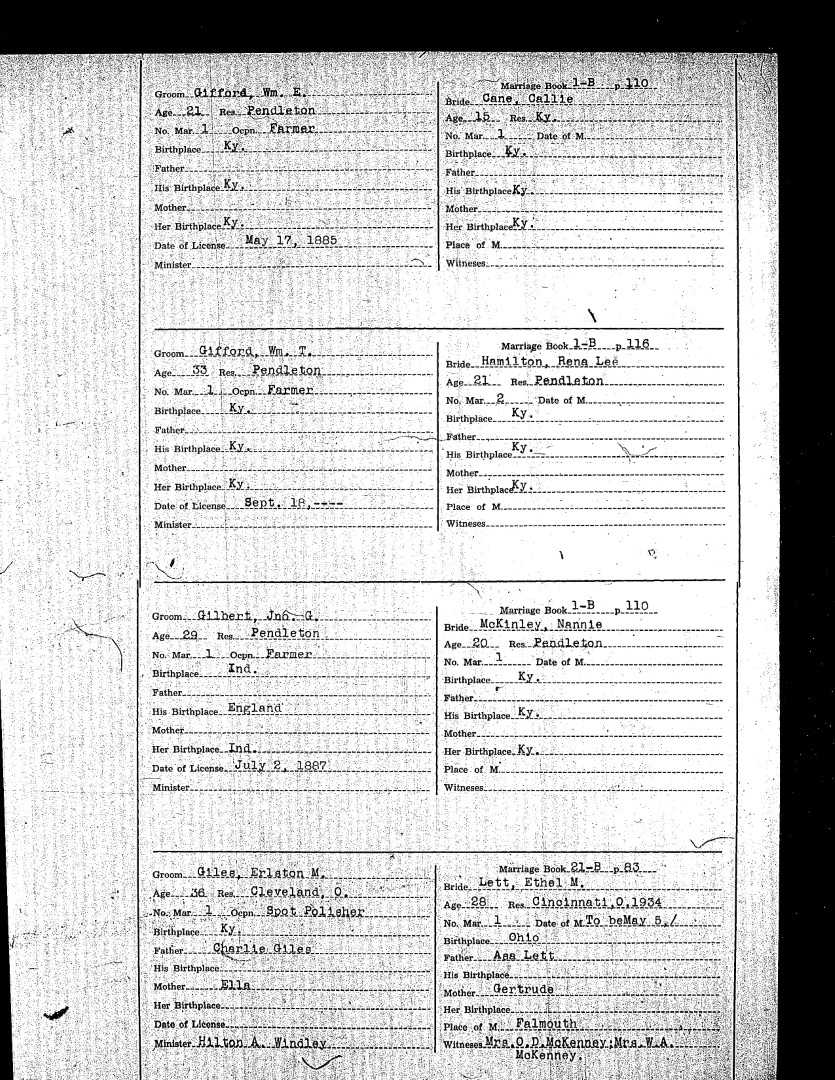 Groom Gifford, Wm. E.
Age 21 Res. Pendleton
No. Mar. 1 Ocpn. Farmer
Birthplace Ky.
Father
His Birthplace Ky.
Mother
Her Birthplace Ky.
Date of License May 17, 1885
Minister
Marriage Book 1-B p. 110
Bride Cane, Callie
Age 15 Res. Ky.
No. Mar. 1 Date of M.
Birthplace Ky.
Father
His Birthplace Ky.
Mother
Her Birthplace Ky.
Place of M.
Witneses
Groom Gifford, Wm. T.
Age 33 Res. Pendleton
No. Mar. 1 Ocpn. Farmer
Birthplace Ky.
Father
His Birthplace Ky.
Mother
Her Birthplace Ky.
Date of License Sept. 18,----
Minister
Marriage Book 1-B p. 116
Bride Hamilton, Rena Lee
Age 21 Res. Pendleton
No. Mar. 2 Date of M.
Birthplace Ky.
Father
His Birthplace Ky.
Mother
Her Birthplace Ky.
Place of M.
Witneses
Groom Gilbert, Jno. G.
Age 29 Res. Pendleton
No. Mar. 1 Ocpn. Farmer
Birthplace Ind.
Father
His Birthplace England
Mother
Her Birthplace Ind.
Date of License July 2, 1887
Minister
Marriage Book 1-B p. 110
Bride McKinley, Nannie
Age 20 Res. Pendleton
No. Mar. 1 Date of M.
Birthplace Ky.
Father
His Birthplace Ky.
Mother
Her Birthplace Ky.
Place of M.
Witneses
Groom Giles, Erlston M.
Age 36 Res. Cleveland, O.
No. Mar. 1 Ocpn. Spot Polisher
Birthplace Ky.
Father Charlie Giles
His Birthplace
Mother Ella
Her Birthplace
Date of License
Minister Hilton A. Windley
Marriage Book 21-B p. 83
Bride Lett, Ethel M.
Age 28 Res. Cincinnati,O.1934
No. Mar. 1 Date of M. To beMay 5,/
Birthplace Ohio
Father Asa Lett
His Birthplace
Mother Gertrude
Her Birthplace
Place of M. Falmouth
Witneses Mrs.O.D.McKenney;Mrs.W.A.
McKenney.